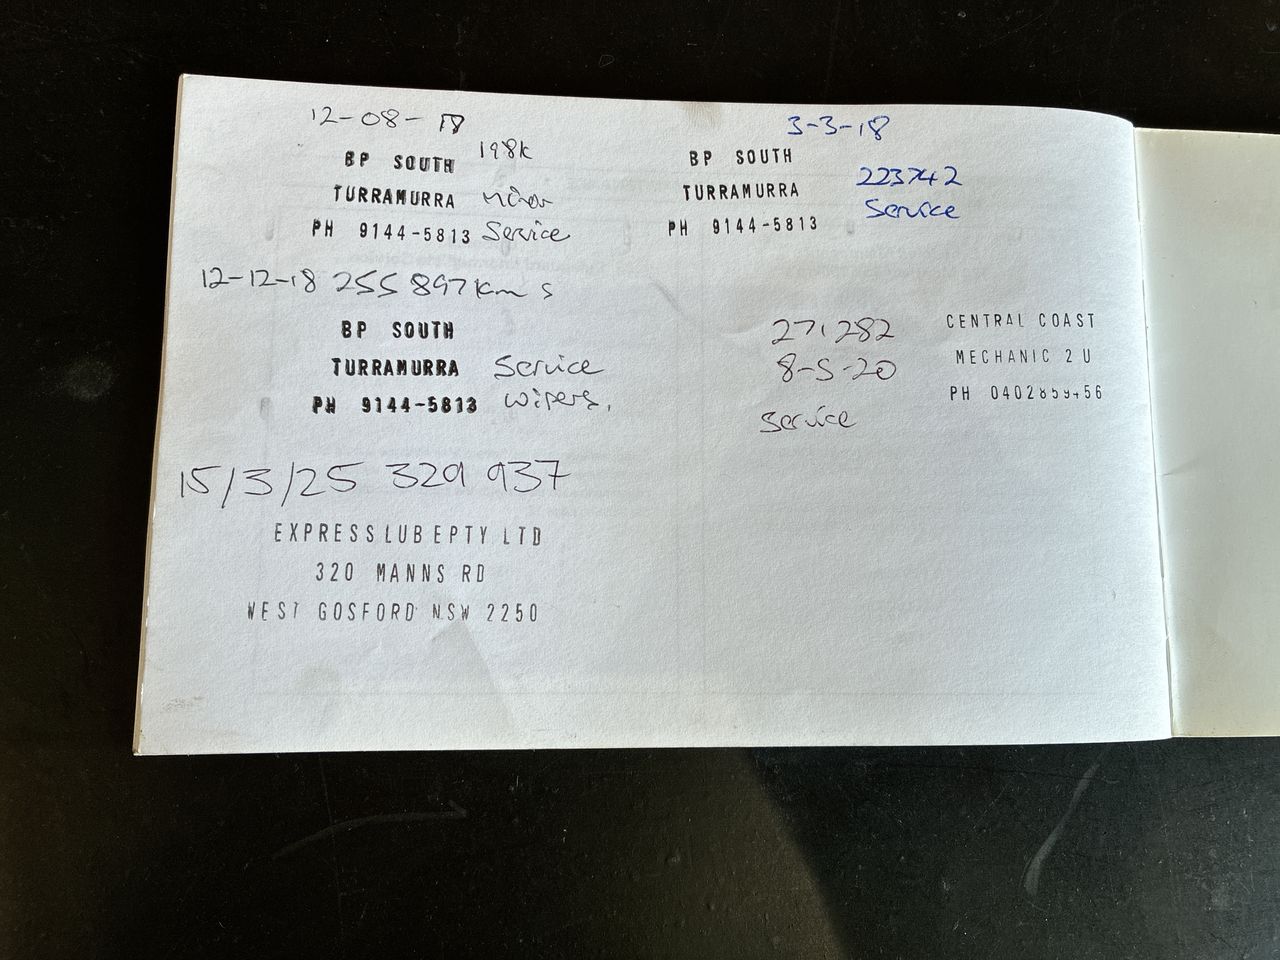 12-08-18
198k
BP SOUTH
TURRAMURRA minor
PH 9144-5813 Service
3-3-18
BP SOUTH
TURRAMURRA 223742
PH 9144-5813 Service
12-12-18 255 897 km s
BP SOUTH
TURRAMURRA Service
PH 9144-5813 wipers,
271282
8-5-20
Service
CENTRAL COAST
MECHANIC 2 U
PH
15/3/25 329 937
EXPRESS LUBE PTY LTD
320 MANNS RD
WEST GOSFORD NSW 2250